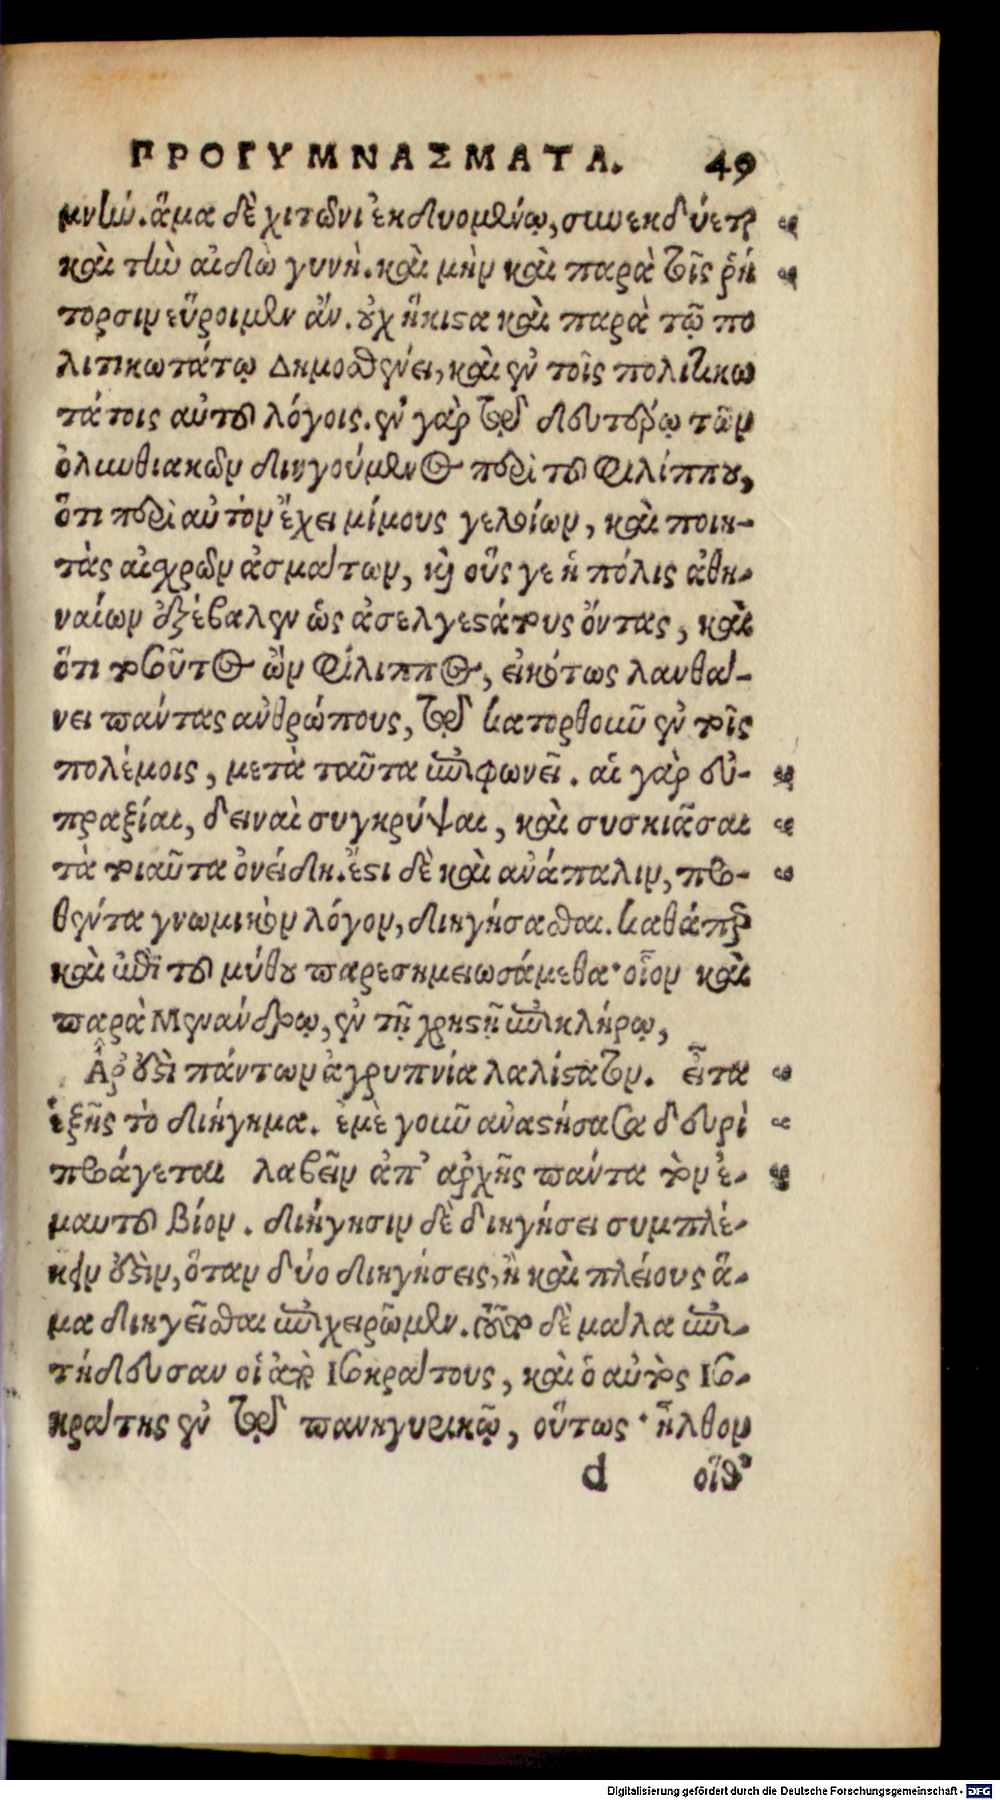 ΠΡΟΓΥΜΝΑΣΜΑΤΑ. 49
μνὴν. ἅμα δὲ χιτῶνι ἐκδυομένῳ, συνεκδύεται
καὶ τὴν αἰδῶ γυνή. καὶ μὴν καὶ παρὰ τοῖς ῥή
τορσιν εὕροιμεν ἄν. οὐχ ἥκιστα καὶ παρὰ τῷ πο
λιτικωτάτῳ Δημοσθένει, καὶ ἐν τοῖς πολιτικω
τάτοις αὐτοῦ λόγοις. ἐν γὰρ τῷ δευτέρῳ τῶν
ὀλυνθιακῶν διηγούμενος περὶ τοῦ Φιλίππου,
ὅτι περὶ αὐτὸν ἔχει μίμους γελοίων, καὶ ποιη-
τὰς αἰσχρῶν ἀσμάτων, καὶ οὕς γε ἡ πόλις ἀθη-
ναίων ἐξέβαλεν ὡς ἀσελγεστάτους ὄντας, καὶ
ὅτι τοιοῦτος ὢν Φίλιππος, εἰκότως λανθά-
νει πάντας ἀνθρώπους, τῷ κατορθοῦν ἐν τοῖς
πολέμοις, μετὰ ταῦτα ἐπιφωνεῖ. αἱ γὰρ εὐ-
πραξίαι, δειναὶ συγκρύψαι, καὶ συσκιᾶσαι
τὰ τοιαῦτα ὀνείδη. ἔστι δὲ καὶ ἀνάπαλιν, προ-
θέντα γνωμικὸν λόγον, διηγήσασθαι. καθάπερ
καὶ ἐπὶ τοῦ μύθου παρεσημειωσάμεθα· οἷον καὶ
παρὰ Μενάνδρῳ, ἐν τῇ χρηστῇ ἐπικλήρῳ,
Ἆρ' ἐστὶ πάντων ἀγρυπνία λαλίστατον. εἶτα
ἑξῆς τὸ διήγημα. ἐμὲ γοῦν ἀναστήσασα δευρὶ
προάγεται λαβεῖν ἀπ' ἀρχῆς πάντα τὸν ἐ-
μαυτοῦ βίον. διήγησιν δὲ διηγήσει συμπλέ-
κειν ἐστὶν, ὅταν δύο διηγήσεις, ἢ καὶ πλείους ἅ-
μα διηγεῖσθαι ἐπιχειρῶμεν. τοῦτο δὲ μάλα ἐπι-
τήδευσαν οἱ ἀπὸ Ισοκράτους, καὶ ὁ αὐτὸς Ισο-
κράτης ἐν τῷ πανηγυρικῷ, οὕτως· ἦλθον
d οἵθ'
Digitalisierung gefördert durch die Deutsche Forschungsgemeinschaft - DFG